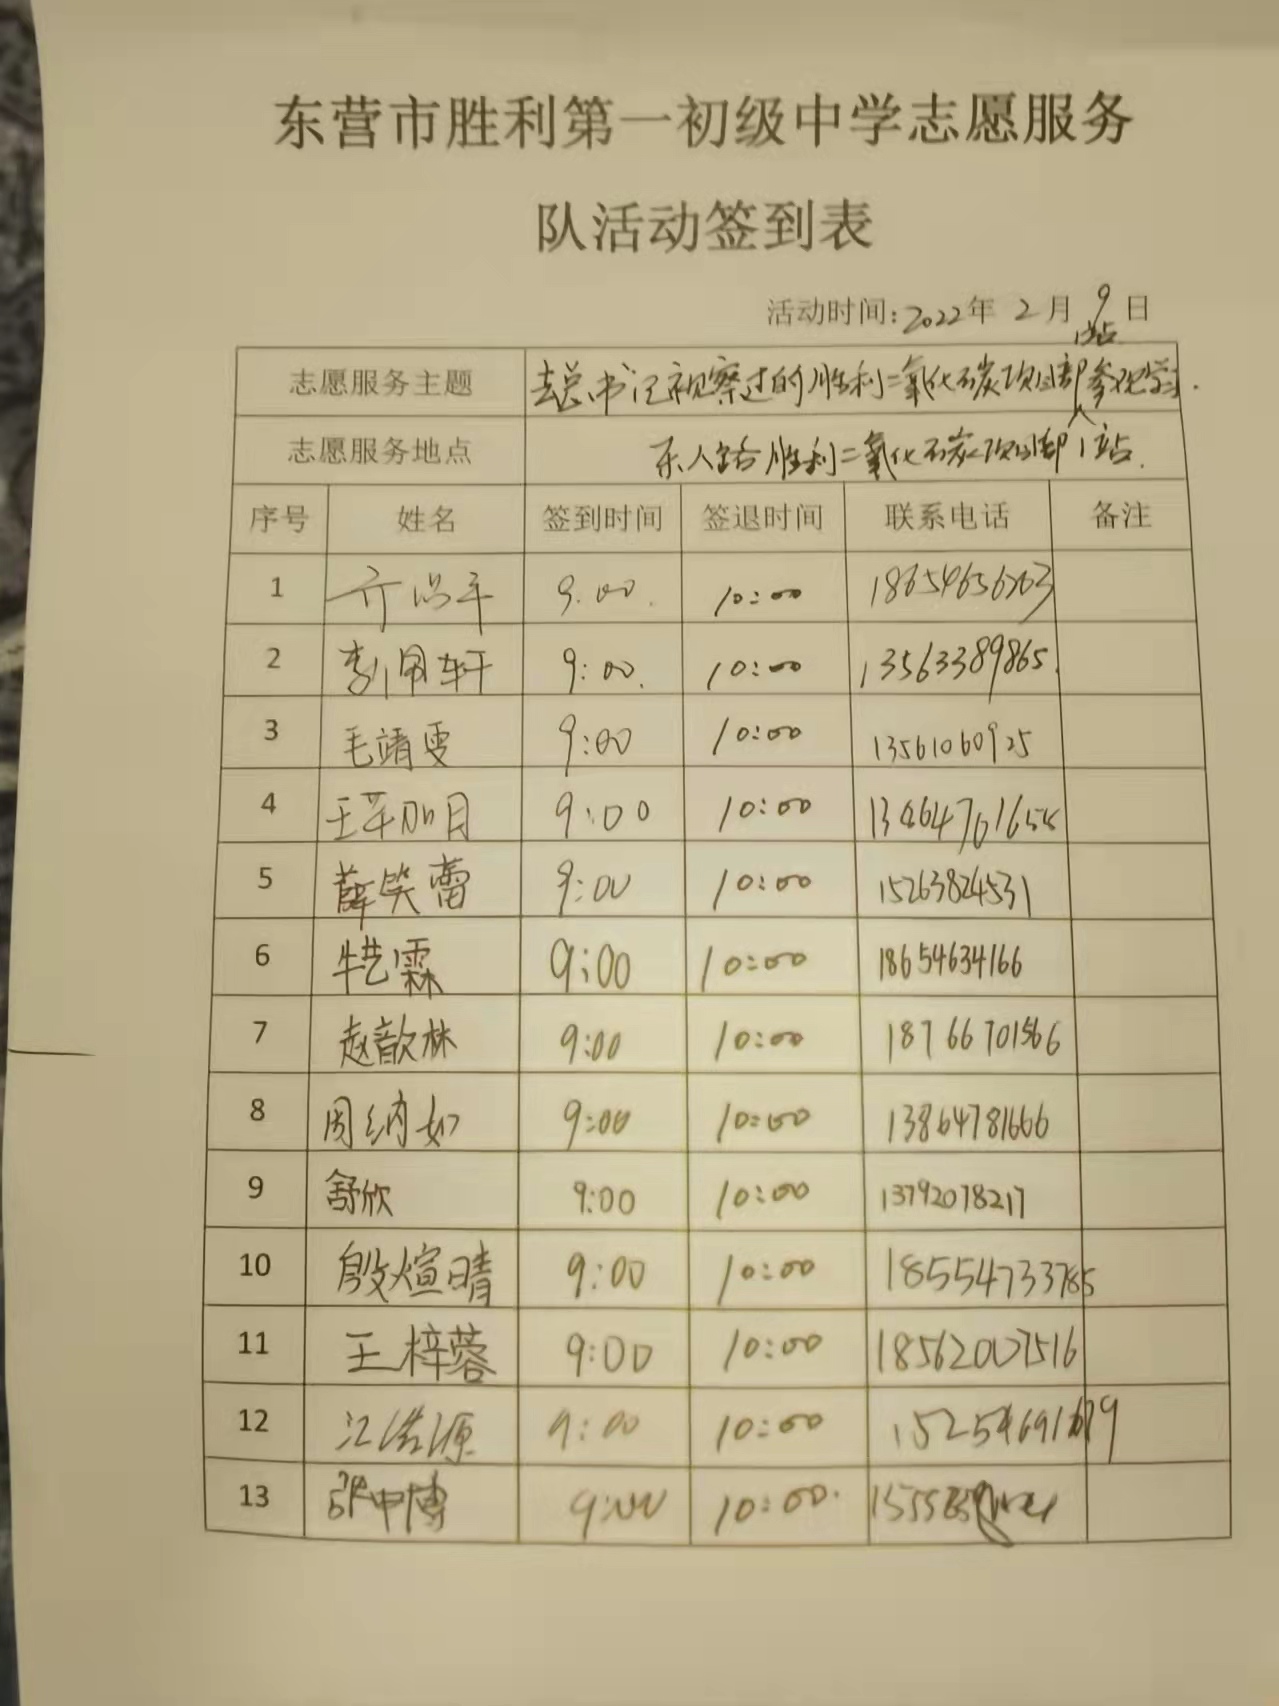 东营市胜利第一初级中学志愿服务
队活动签到表
活动时间:2022年 2月 9日
志愿服务主题 去总书记视察过的胜利二氧化碳项目部1站参观学习.
志愿服务地点 东八路胜利二氧化碳项目部1站.
序号 姓名 签到时间 签退时间 联系电话 备注
1 9:00. 10:00
2 9:00. 10:00 13563389865.
3 毛靖雯 9:00 10:00 13561060925
4 9:00 10:00
5 薛笑蕾 9:00 10:00 15263824531
6 牛艺霖 9:00 10:00 18654634166
7 赵歆林 9:00 10:00 18766701566
8 周纳如 9:00 10:00 13864781666
9 舒欣 9:00 10:00 13792078217
10 殷煊晴 9:00 10:00 18554733785
11 王梓蓉 9:00 10:00 18562007516
12 江浩源 9:00 10:00
13 张申博 9:00 10:00.